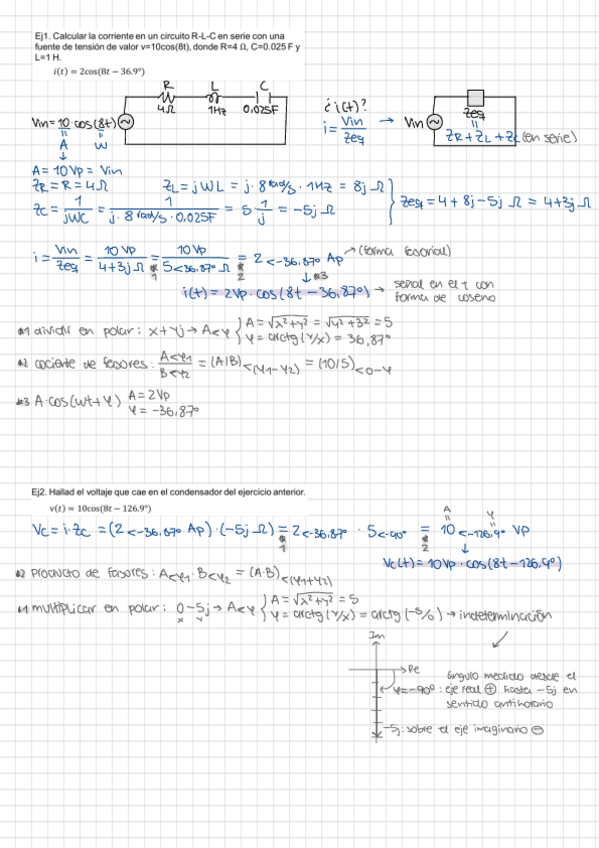 Ej1. Calcular la corriente en un circuito R-L-C en serie con una
fuente de tensión de valor v=10cos(8t), donde R=4 Ω, C=0.025 F y
L=1 H.
i(t) = 2cos(8t − 36.9°)
R L C
4Ω 1Hz 0.025F
¿i(t)?
Vin=10·cos(8t)
A W
i = Vin/Zeq → Vin
Zeq
=
ZR+ZL+ZC (en serie)
A = 10 Vp = Vin
ZR = R = 4Ω ZL = jWL = j·8 rad/s · 1Hz = 8j Ω
ZC = 1/jWC = 1/(j·8 rad/s·0,025F) = 5·1/j = -5j Ω
Zeq = 4+8j-5j Ω = 4+3j Ω
i = Vin/Zeq = 10Vp/(4+3j Ω) =*1 10Vp/(5<-36.87° Ω) =*2 2<-36,87° Ap → (forma fasorial)
↓*3
i(t) = 2Vp·cos(8t-36,87°) → señal en el t con
forma de coseno
*1 dividir en polar: x+yj → A<φ { A = √(x²+y²) = √(4²+3²) = 5
φ = arctg(y/x) = 36,87°
*2 cociente de fasores: A<φ1/B<φ2 = (A/B)<(φ1-φ2) = (10/5)<0-φ
*3 A·cos(wt+φ) A = 2Vp
φ = -36,87°
Ej2. Hallad el voltaje que cae en el condensador del ejercicio anterior.
v(t) = 10cos(8t − 126.9°)
A φ
Vc = i·Zc = (2<-36,87° Ap)·(-5j Ω) =*1 2<-36,87° · 5<-90° =*2 10<-126,9° Vp
↓
Vc(t) = 10Vp·cos(8t-126,9°)
*2 producto de fasores: A<φ1·B<φ2 = (A·B)<(φ1+φ2)
*1 multiplicar en polar: 0-5j → A<φ { A = √(x²+y²) = 5
x y
φ = arctg(y/x) = arctg(-5/0) → indeterminación
Im
Re
φ=-90°: ángulo medido desde el
eje real ⊕ hasta -5j en
sentido antihorario
-5j: sobre el eje imaginario ⊖